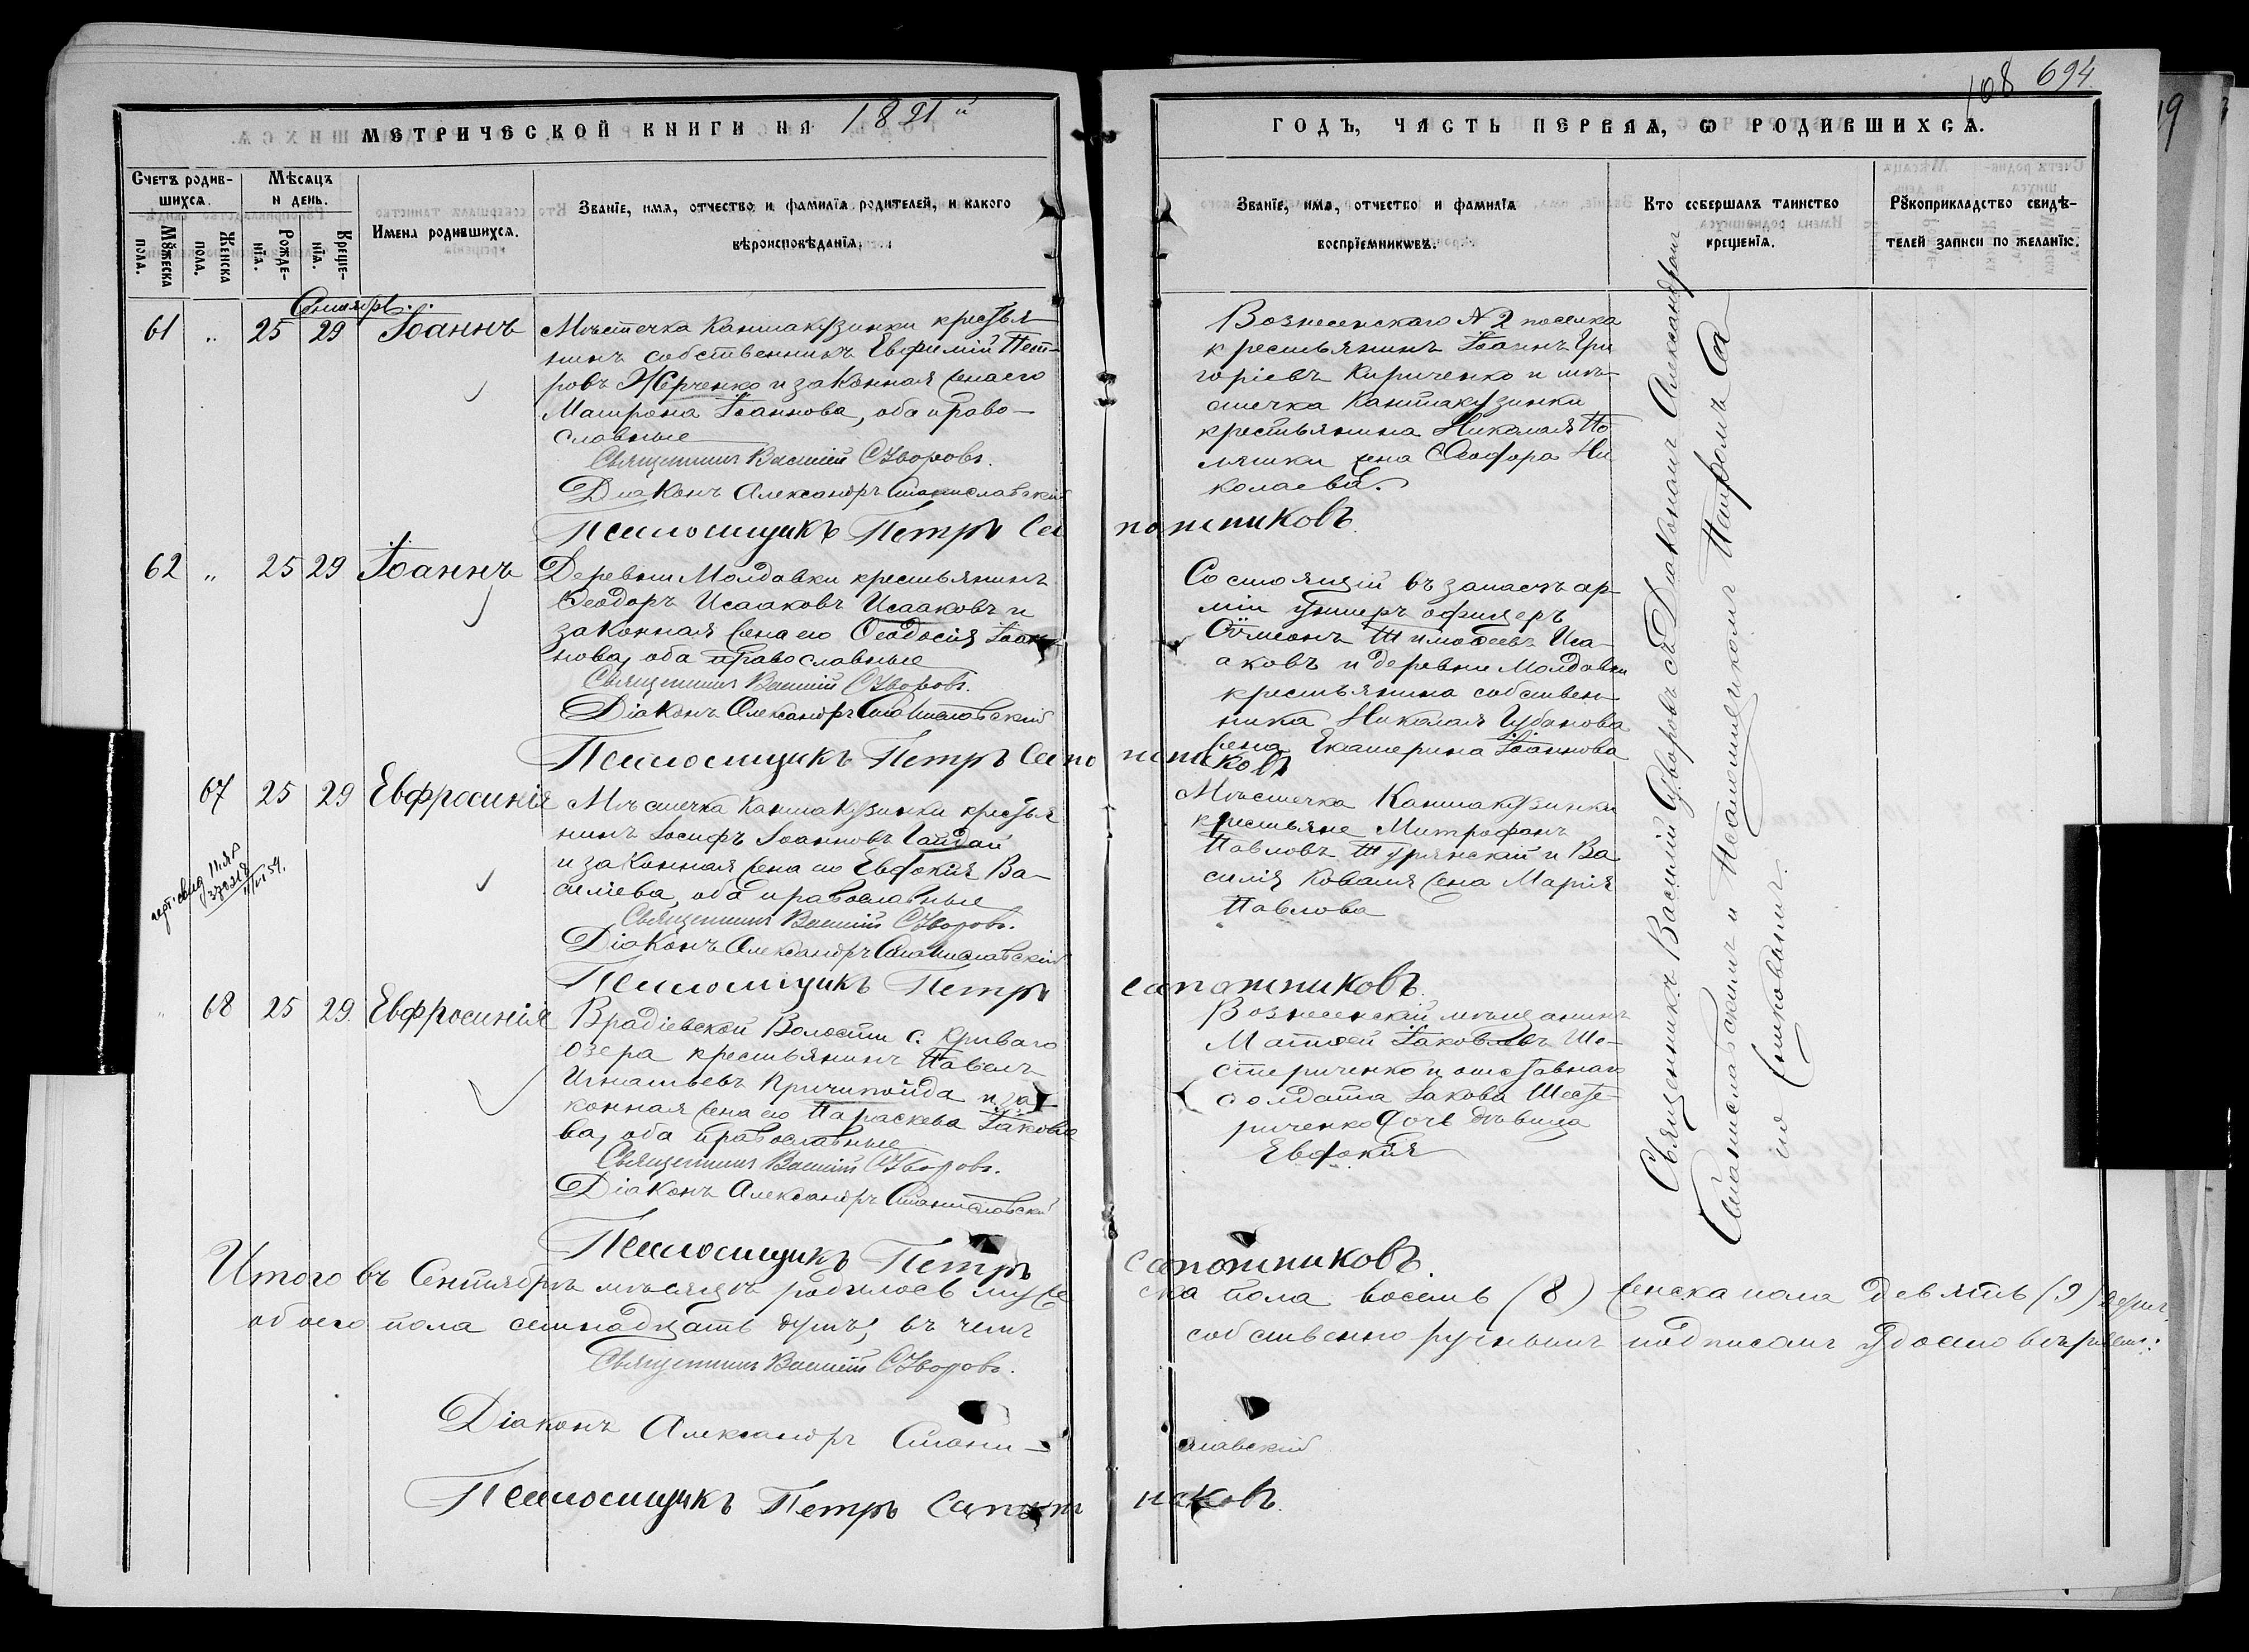 108 694.
МЕТРИЧЕСКОЙ КНИГИ НА 1891й
ГОДЪ, ЧАСТЬ ПЕРВАЯ, Ѡ РОДИВШИХСЯ.
Счетъ родив-
шихся.
Мꙋжеска
пола.
Женска
пола.
Мѣсяцъ
и день.
Рожде-
нія.
Креще-
нія.
Имена родившихся.
Званіе, имя, отчество и фамилія родителей, и какого
вѣроисповѣданія.
Званіе, имя, отчество и фамилія
воспріемникѡвъ.
Кто совершалъ таинство
крещенія.
Рꙋкоприкладство свидѣ-
телей записи по желанію.
Сентябрь
61 " 25 29 Іоаннъ
Мѣстечка Кантакузинки крестья
нинъ собственникъ Евфимій Пет-
ровъ Жерченко и законная жена его
Матрона Іоаннова, оба право-
славные
Священникъ Василій Суворовъ.
Діаконъ Александръ Станиславскій
Псаломщикъ Петръ Сапожниковъ.
Вознесенскаго № 2 поселка
крестьянинъ Іоаннъ Гри
горіевъ Кириченко и мѣ-
стечка Кантакузинки
крестьянина Николая По
ляшки жена Ѳеофора Ни
колаева.
62 " 25 29 Іоаннъ
Деревни Молдавки крестьянинъ
Ѳеодоръ Исааковъ Исааковъ и
законная жена его Ѳеодосія Іоан-
нова, оба православные
Священникъ Василій Суворовъ.
Діаконъ Александръ Станиславскій
Псаломщикъ Петръ Сапожниковъ
Состоящій въ запасѣ ар-
міи унтеръ офицеръ
Сѵмеонъ Тимоѳеевъ Иса-
аковъ и деревни Молдавки
крестьянина собствен-
ника Николая Урбанова
жена Екатерина Іоаннова
67 25 29 Евфросинія
Мѣстечка Кантакузинки крестья
нинъ Іосифъ Іоанновъ Гайдай
и законная жена его Евдокія Ва-
силіева, оба православные
Священникъ Василій Суворовъ.
Діаконъ Александръ Станиславскій
Псаломщикъ Петръ Сапожниковъ.
Мѣстечка Кантакузинки
крестьяне Митрофанъ
Павловъ Турянскій и Ва
силія Коваля жена Марія
Павлова
" 68 25 29. Евфросинія
Врадіевской Волости с. Криваго
озера крестьянинъ Павелъ
Игнатьевъ Причипойда и за-
конная жена его Параскева Іаковле
ва, оба православные
Священникъ Василій Суворовъ.
Діаконъ Александръ Станиславскій
Псаломщикъ Петръ Сапожниковъ.
Вознесенскій мѣщанинъ
Матѳей Іаковлевъ Ше-
стериченко и отставнаго
солдата Іакова Шесте-
риченко дочь дѣвица
Евдокія
Священникъ Василій Суворовъ съ Діакономъ Александромъ
Станиславскимъ и Псаломщикомъ Петромъ Са
пожниковымъ.
Итого въ Сентябрѣ мѣсяцѣ родилось муже
ска пола восемь (8) женска пола девять (9)
обоего пола семнадцать душъ, въ чемъ
собственноручнымъ подписомъ удостовѣряемъ:
Священникъ Василій Суворовъ.
Діаконъ Александръ Станиславскій
Псаломщикъ Петръ Сапожниковъ.